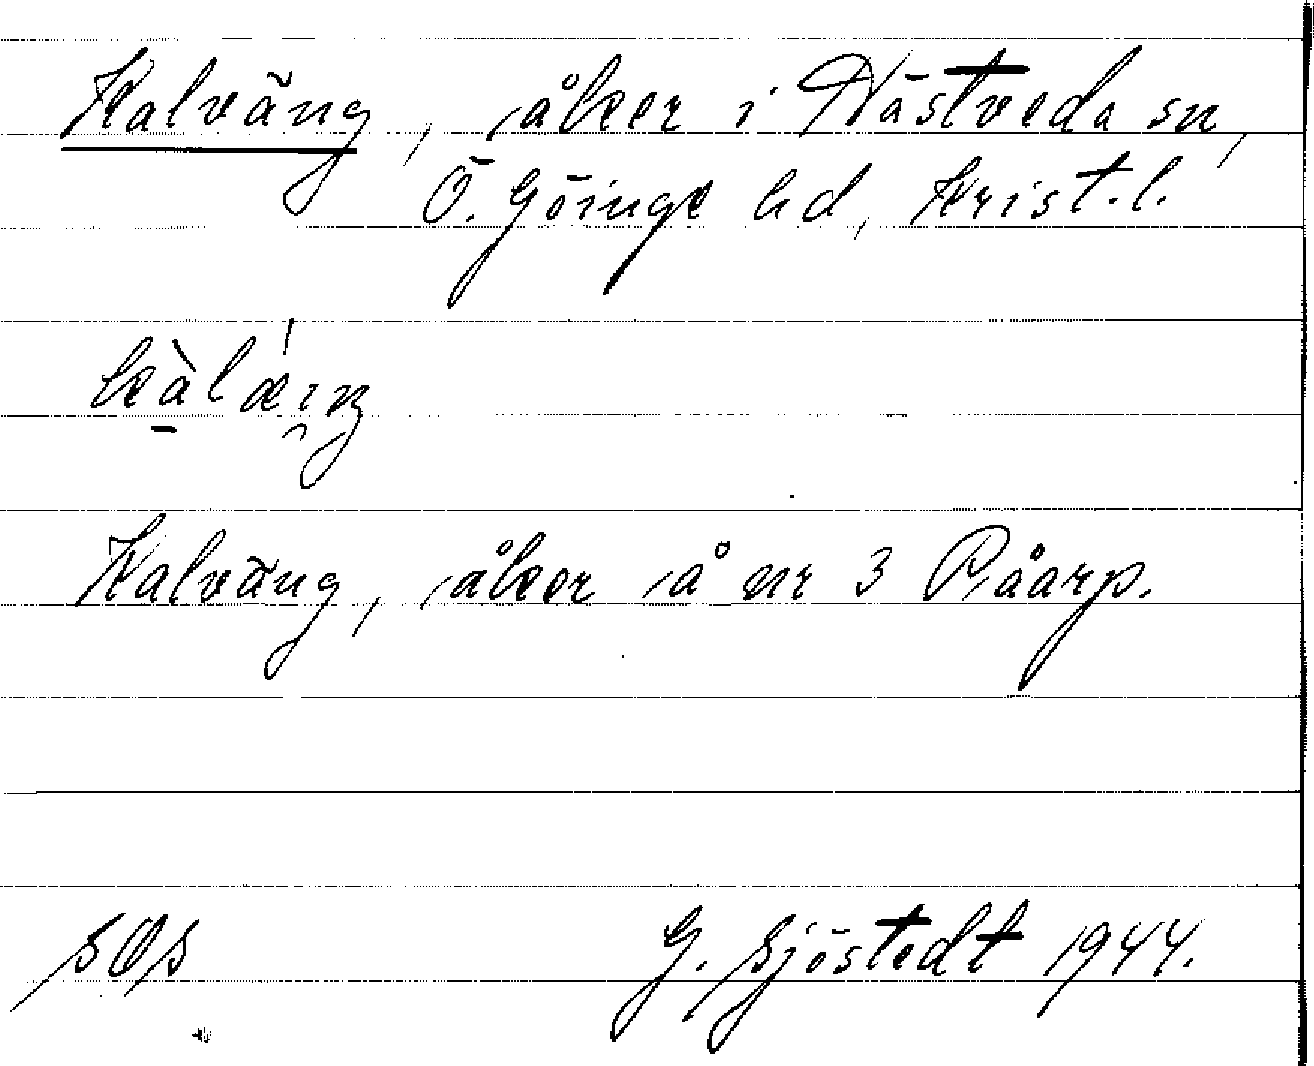 Kalväng, åker i Nästveda sn,
Ö. Göinge hd, Krist. l.
Kalväng, åker å nr 3 Råarp.
SOS G. Sjöstedt 1944.